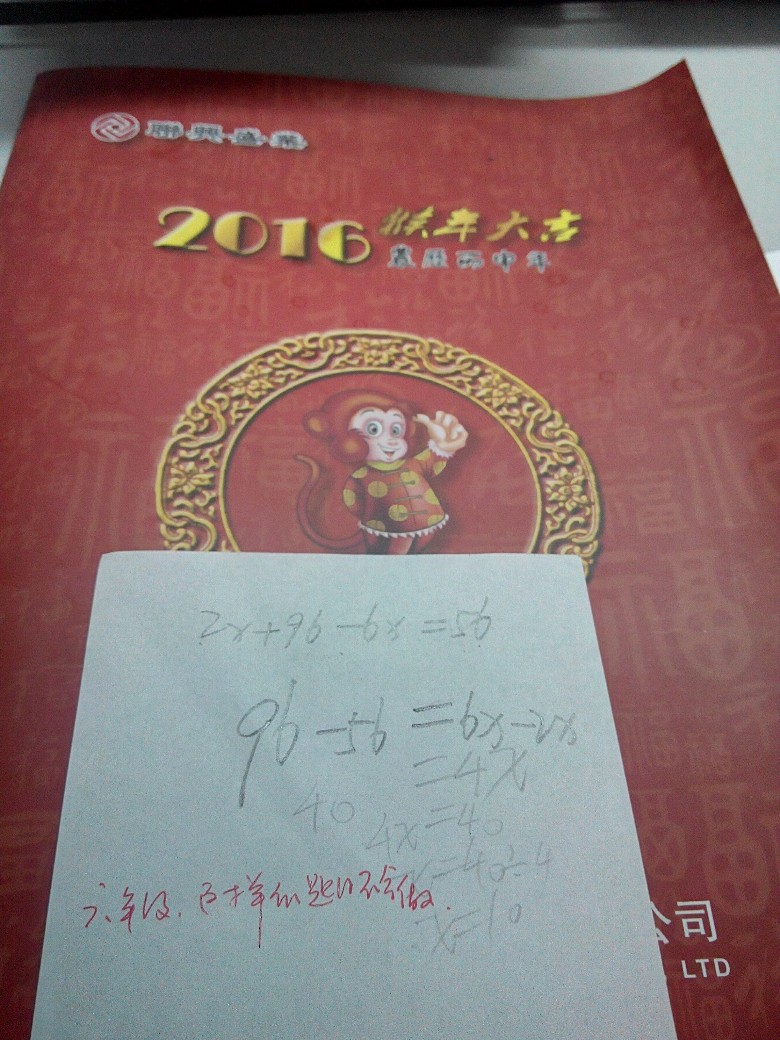 聯興盛業
2016 猴年大吉
農历丙申年
2x+96-6x=56
96-56=6x-2x
=4x
40
4x=40
x=40÷4
x=10
六年级.这样的题目不会做.
公司
LTD